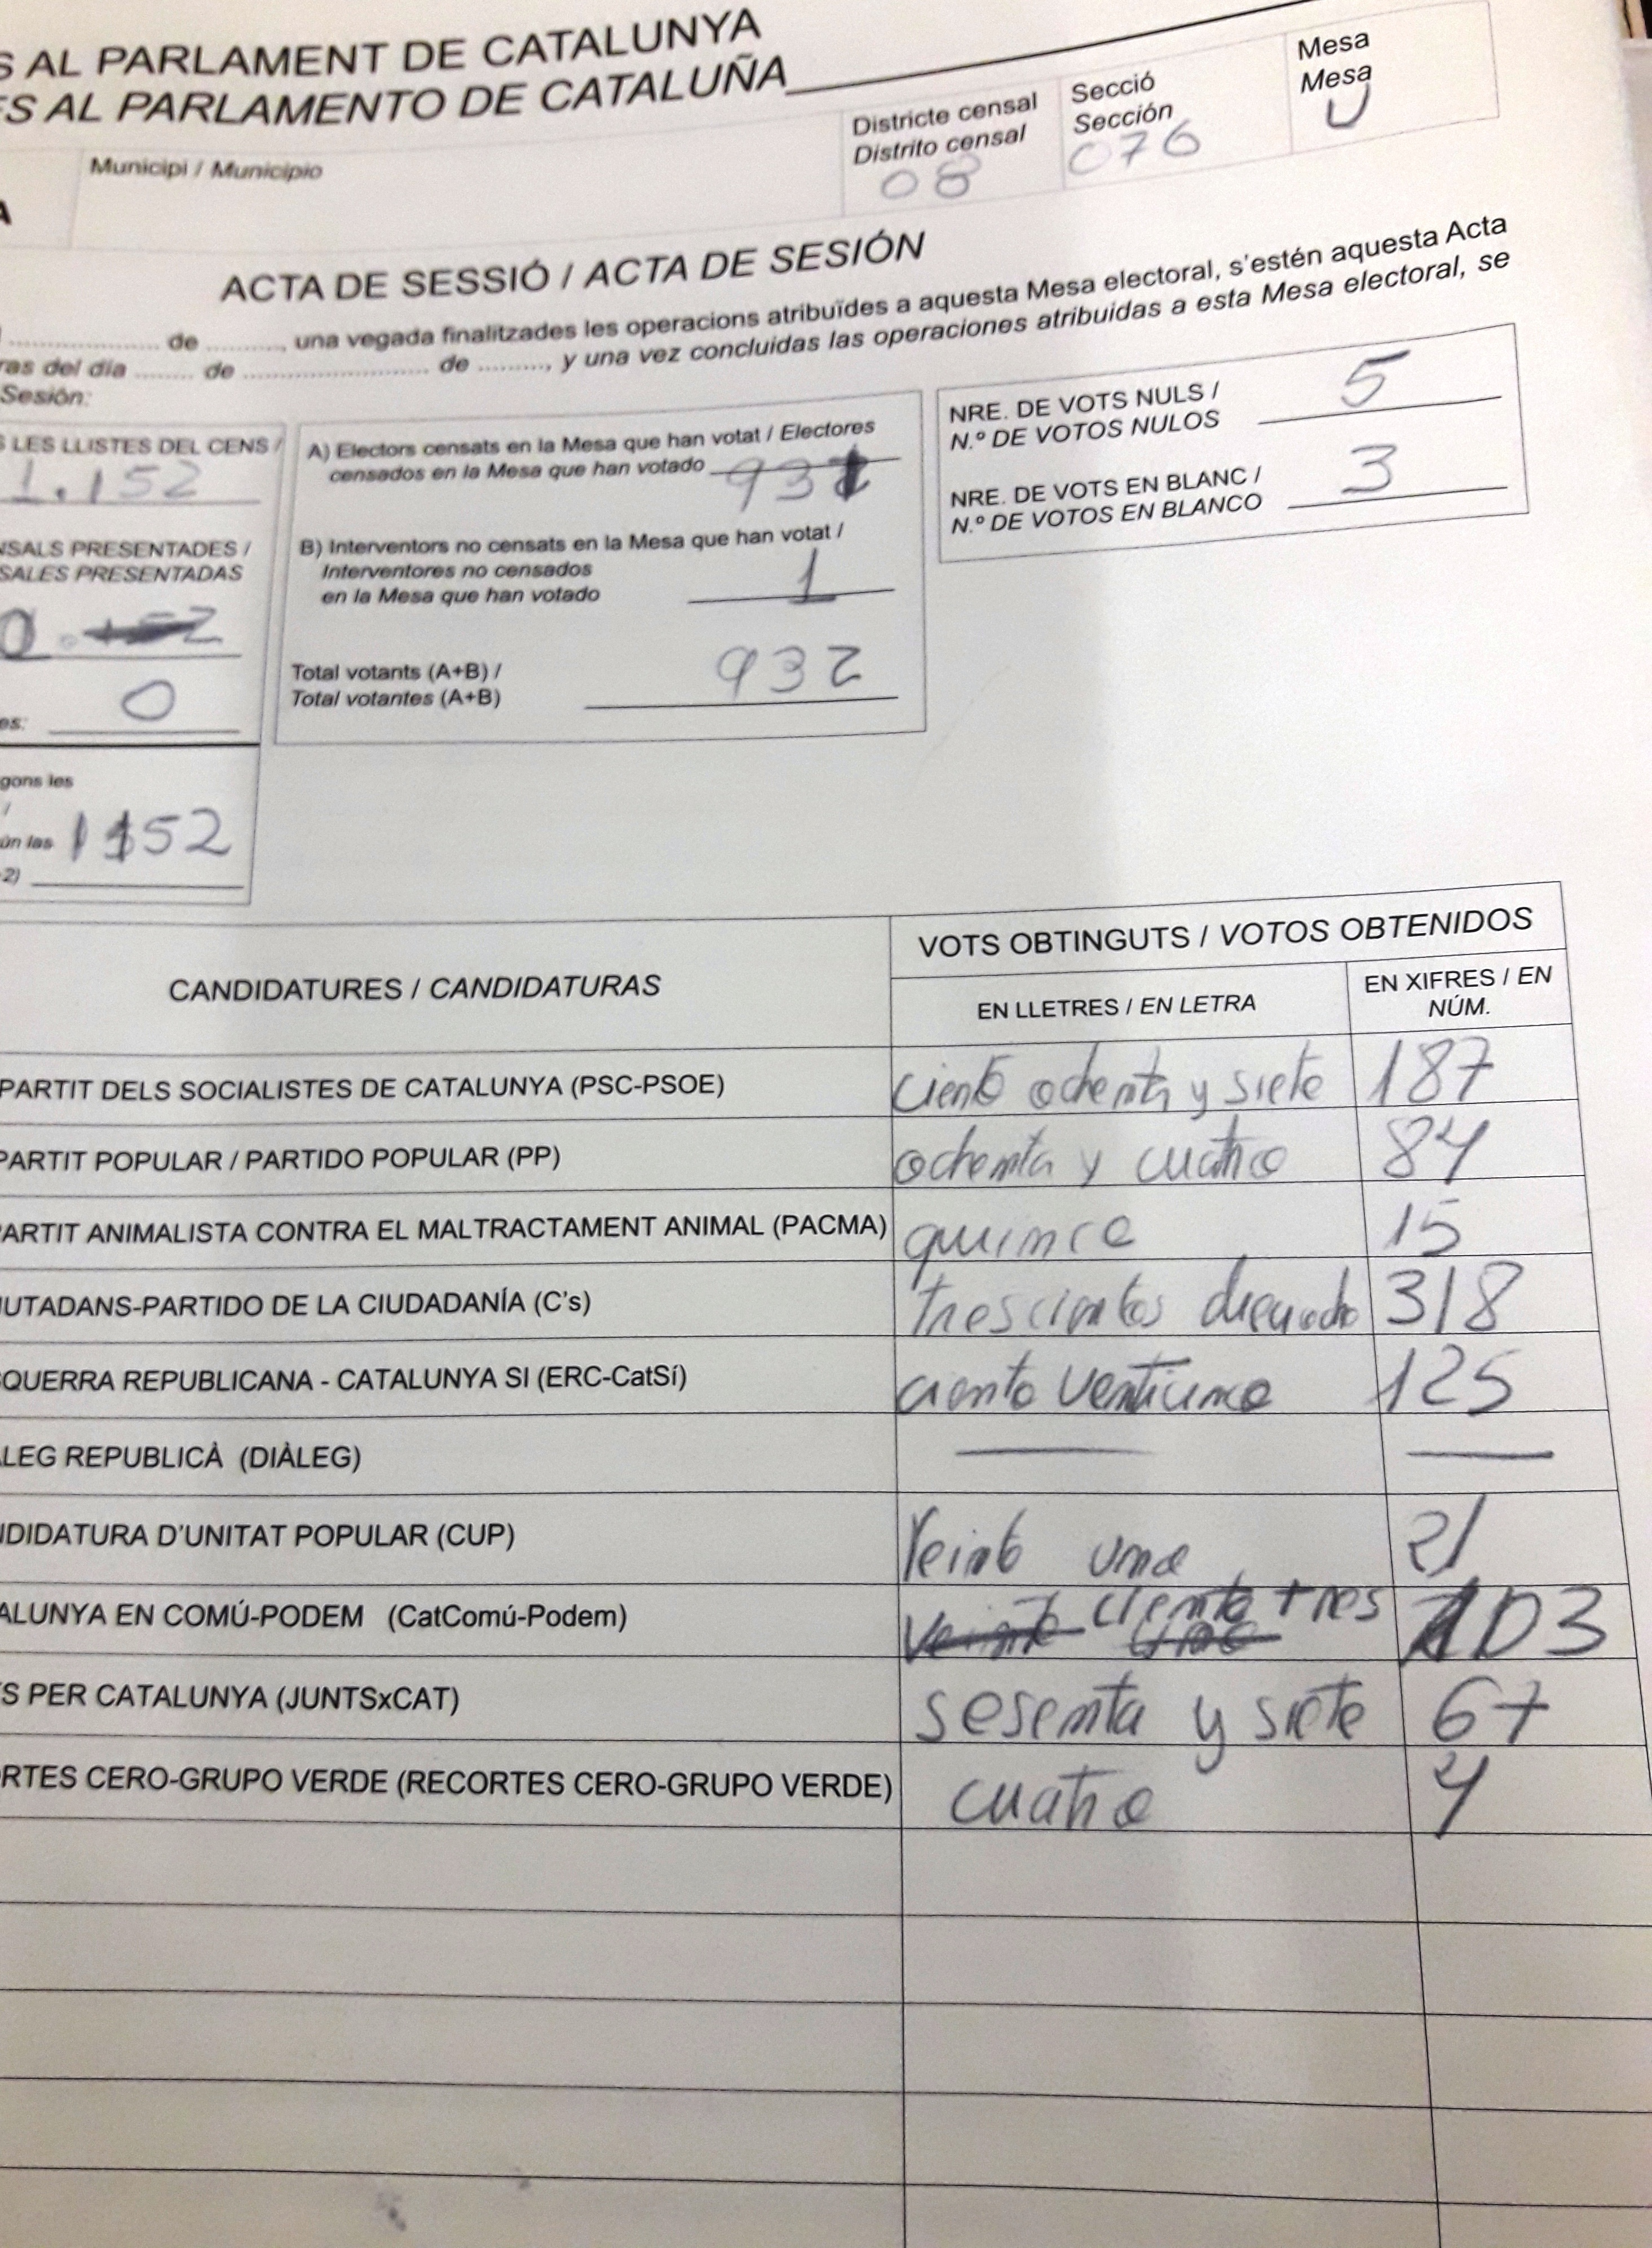 S AL PARLAMENT DE CATALUNYA
ES AL PARLAMENTO DE CATALUÑA
Municipi / Municipio
Districte censal
Distrito censal
08
Secció
Sección
076
Mesa
Mesa
U
ACTA DE SESSIÓ / ACTA DE SESIÓN
de ........, una vegada finalitzades les operacions atribuïdes a aquesta Mesa electoral, s'estén aquesta Acta
ras del día ........ de ........................ de ........, y una vez concluidas las operaciones atribuidas a esta Mesa electoral, se
Sesión:
S LES LLISTES DEL CENS /
1.152
NSALS PRESENTADES /
SALES PRESENTADAS
0
es: 0
gons les
ún las
1152
-2)
A) Electors censats en la Mesa que han votat / Electores
censados en la Mesa que han votado 931
B) Interventors no censats en la Mesa que han votat /
Interventores no censados
en la Mesa que han votado 1
Total votants (A+B) /
Total votantes (A+B) 932
NRE. DE VOTS NULS /
N.º DE VOTOS NULOS 5
NRE. DE VOTS EN BLANC /
N.º DE VOTOS EN BLANCO 3
CANDIDATURES / CANDIDATURAS
VOTS OBTINGUTS / VOTOS OBTENIDOS
EN LLETRES / EN LETRA
EN XIFRES / EN
NÚM.
PARTIT DELS SOCIALISTES DE CATALUNYA (PSC-PSOE) ciento ochenta y siete 187
PARTIT POPULAR / PARTIDO POPULAR (PP) ochenta y cuatro 84
PARTIT ANIMALISTA CONTRA EL MALTRACTAMENT ANIMAL (PACMA) quince 15
UTADANS-PARTIDO DE LA CIUDADANÍA (C's) trescientos dieciocho 318
QUERRA REPUBLICANA - CATALUNYA SI (ERC-CatSí) ciento venticinco 125
ALEG REPUBLICÀ (DIÀLEG)
NDIDATURA D'UNITAT POPULAR (CUP) Veinti uno 21
ALUNYA EN COMÚ-PODEM (CatComú-Podem) ciento tres 103
S PER CATALUNYA (JUNTSxCAT) sesenta y siete 67
RTES CERO-GRUPO VERDE (RECORTES CERO-GRUPO VERDE) cuatro 4